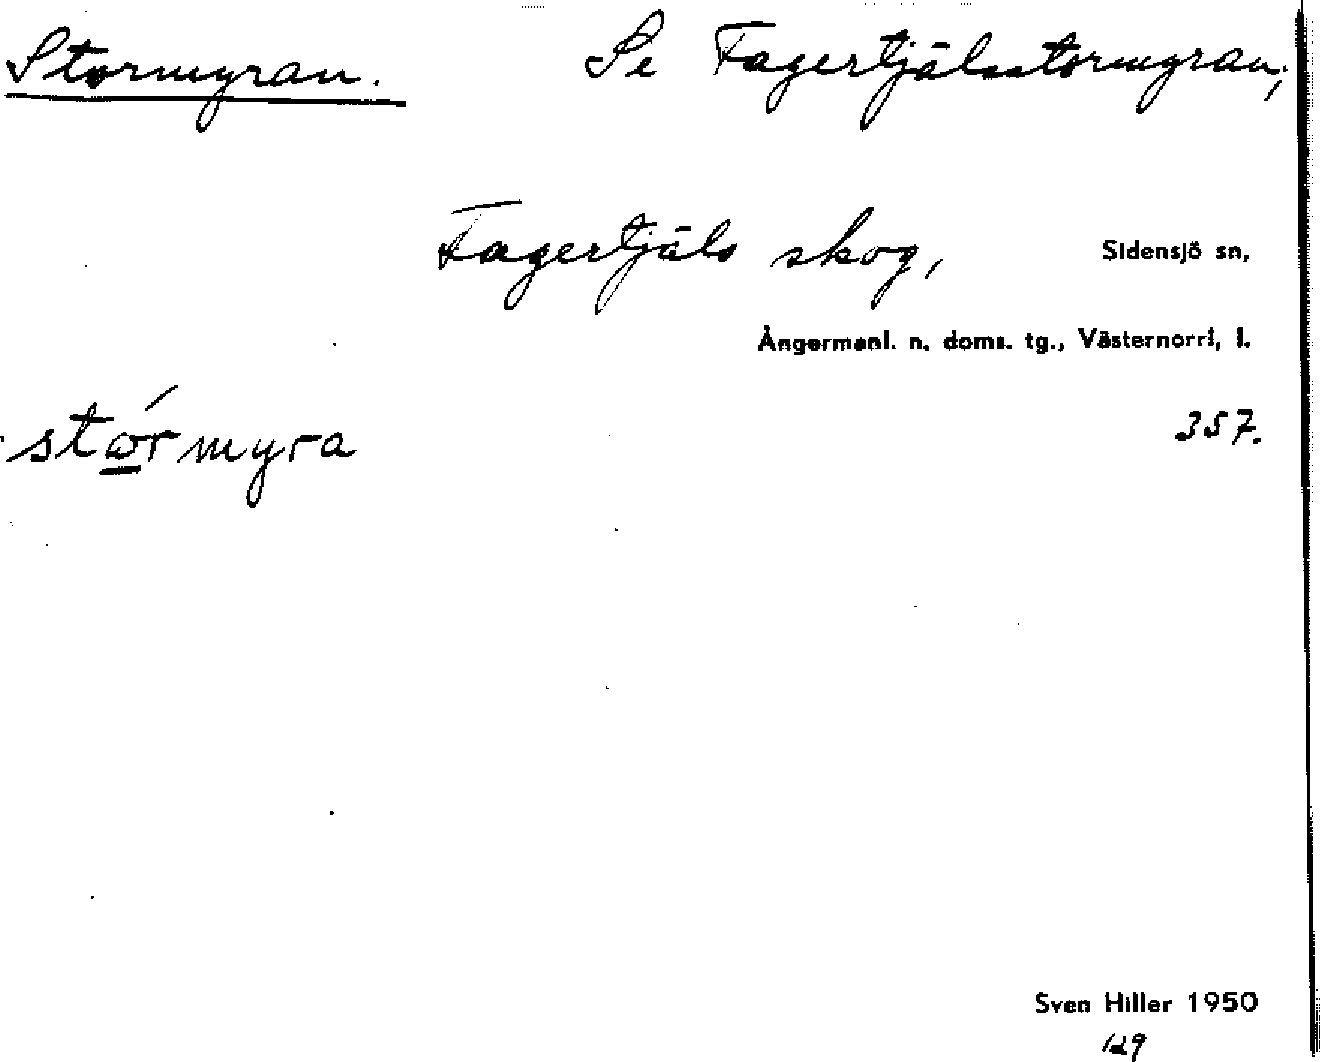 Stormyran. Se Fagertjälsstormyran,
Fagertjäls skog, Sidensjö sn,
Ångermanl. n. doms. tg., Västernorrl, l.
stώ̲rmyra 357.
Sven Hiller 1950
129